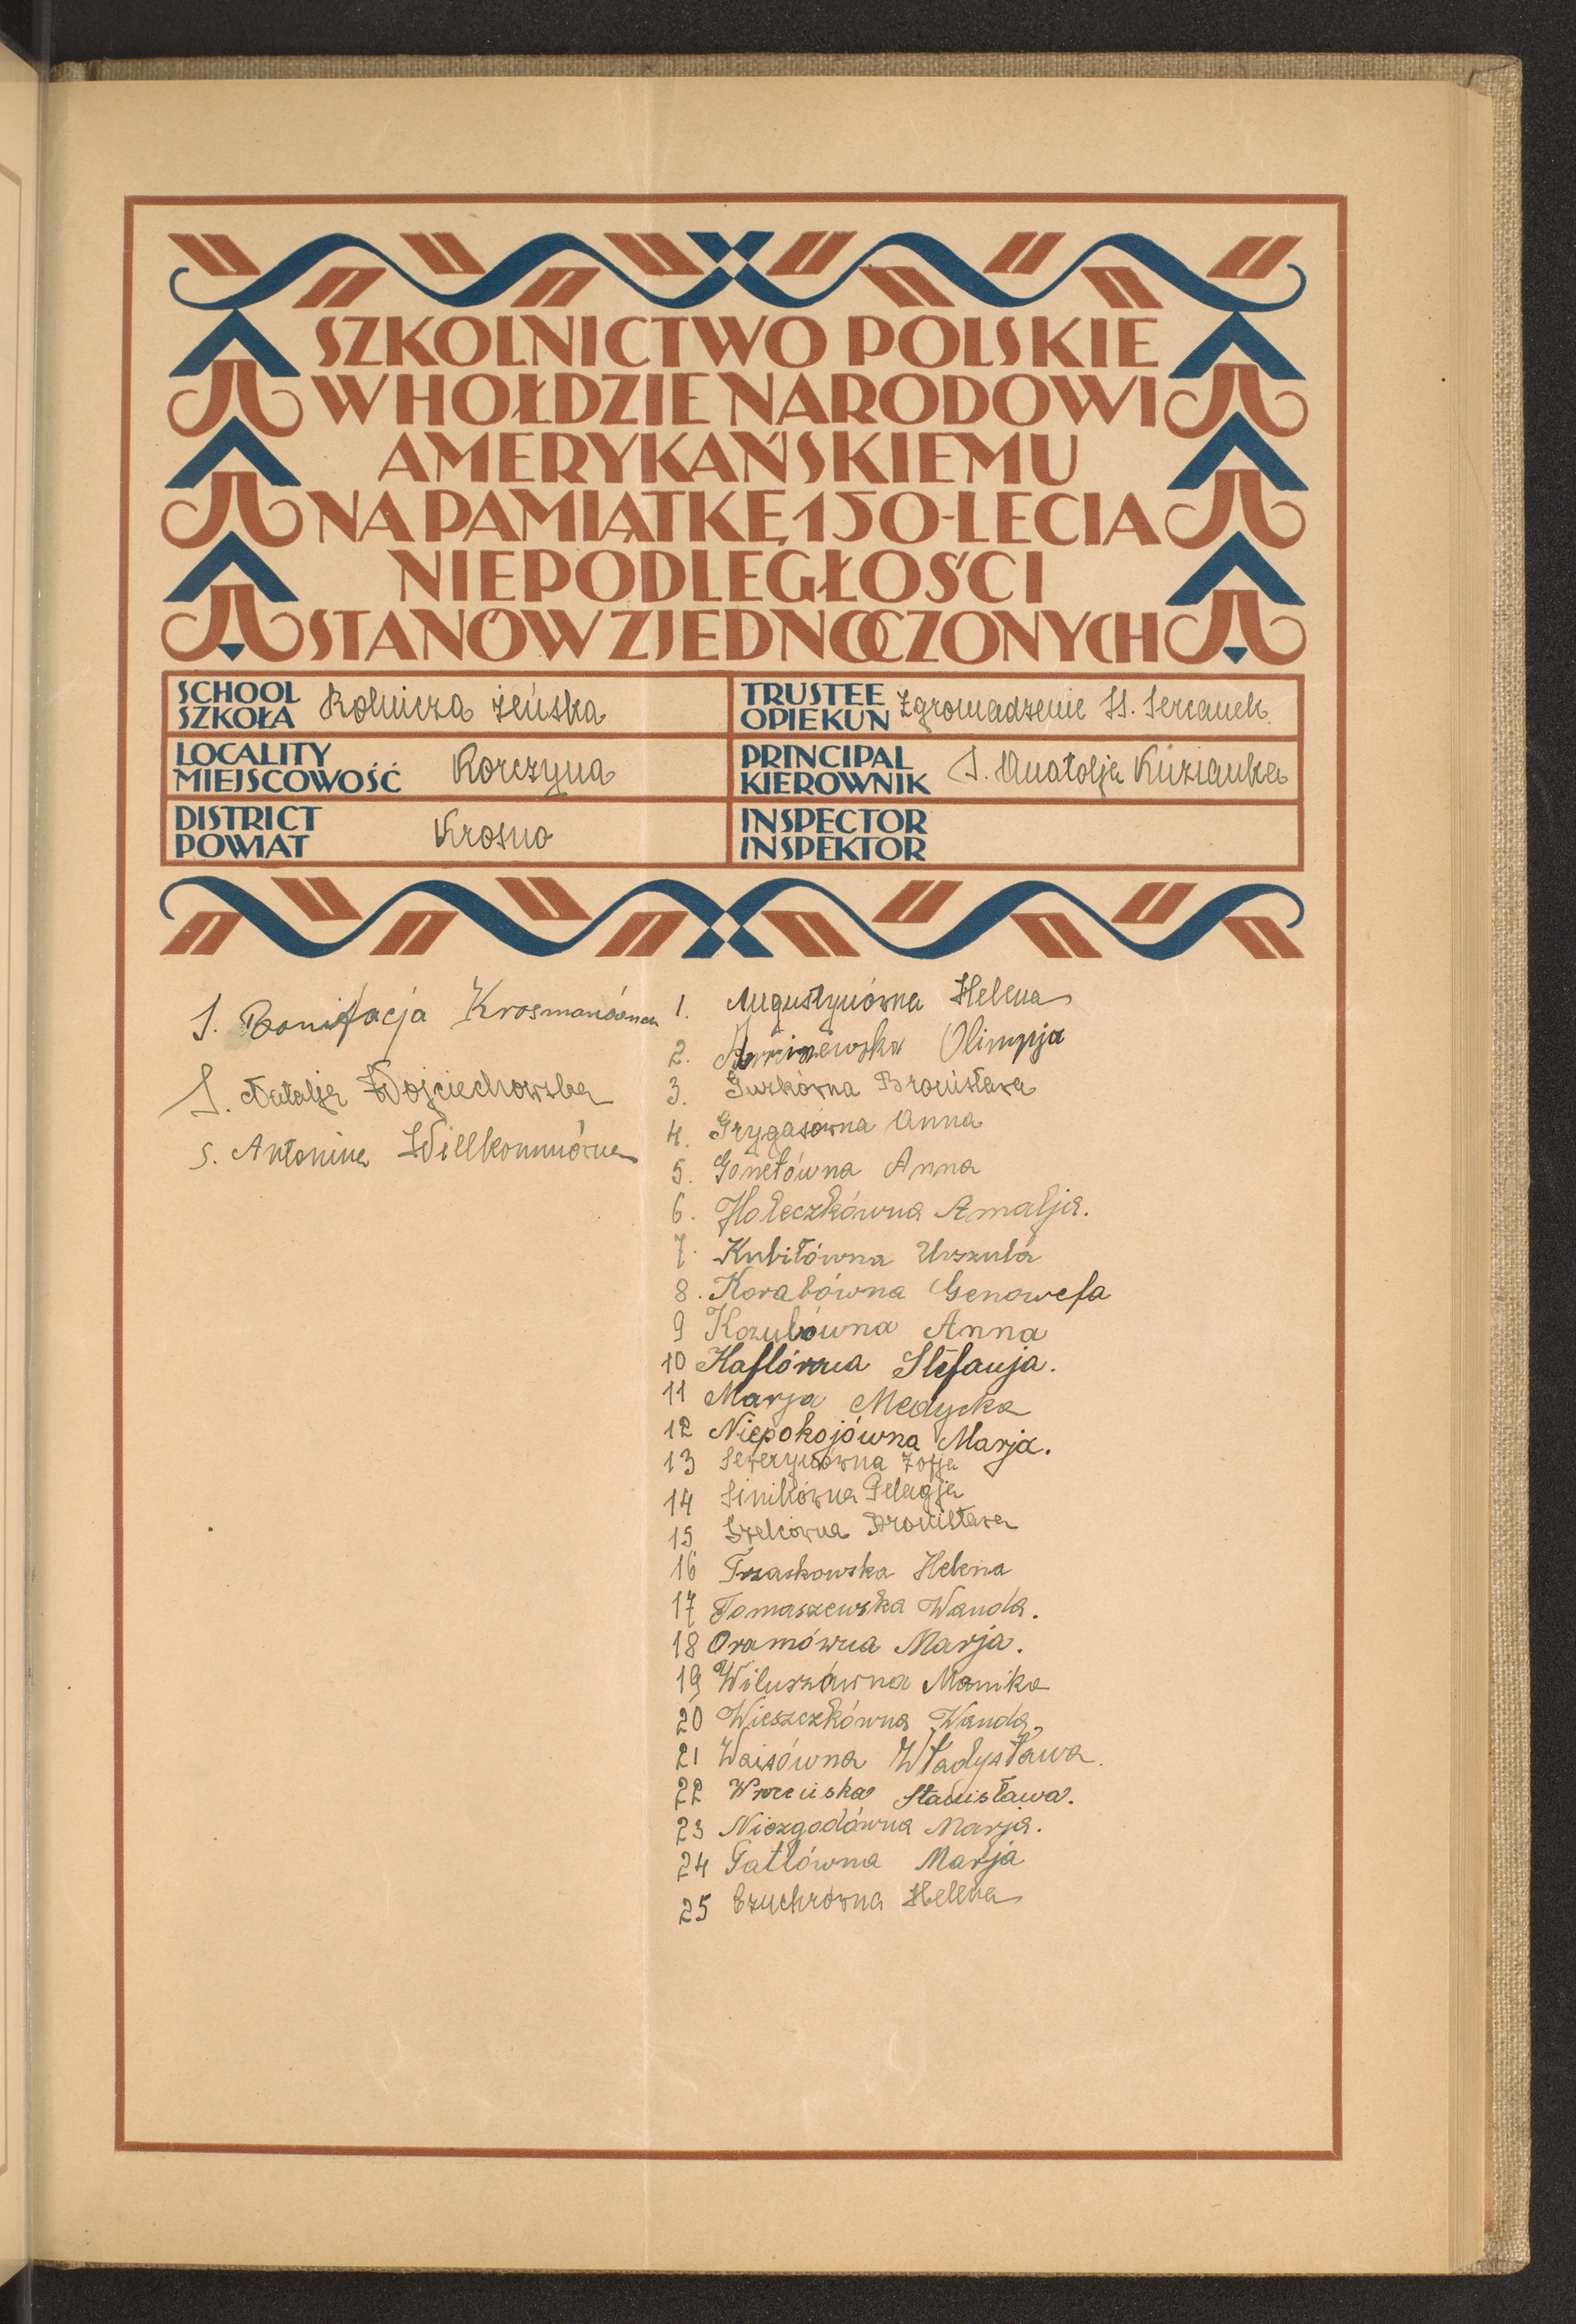 SZKOLNICTWO POLSKIE
W HOŁDZIE NARODOWI
AMERYKAŃSKIEMU
NA PAMIĄTKĘ 150-LECIA
NIEPODLEGŁOŚCI
STANÓW ZJEDNOCZONYCH
SCHOOL
SZKOŁA Rolnicza żeńska
TRUSTEE
OPIEKUN Zgromadzenie SS. Sercanek
LOCALITY
MIEJSCOWOŚĆ Korczyna
PRINCIPAL
KIEROWNIK S. Anatolja Kuzianka
DISTRICT
POWIAT Krosno
INSPECTOR
INSPEKTOR
S. Bonifacja
S. Natalja Wojciechowska
S. Antonina Willkommówna
1. Augustynówna Helena
2. Olimpja
3. Gurkówna Bronisława
4. Grygasówna Anna
5. Gonetówna Anna
6. Hołeczkówna Amalja.
7. Kubitówna Urszula
8. Korabówna Genowefa
9 Kozubówna Anna
10 Kaflówna Stefanja.
11 Marja Medycka
12 Niepokojówna Marja.
13 Sewerynówna Zofja
14 Sinikówna Pelagja
15 Szelcówna Bronisława
16 Trzaskowska Helena
17 Tomaszewska Wanda.
18 Oramówna Marja.
19 Wiluszówna
20 Wieszczkówna Wanda.
21 Waisówna Władysława.
22 Stanisława.
23 Niezgodówna Marja.
24 Marja
25 Czuchrówna Helena